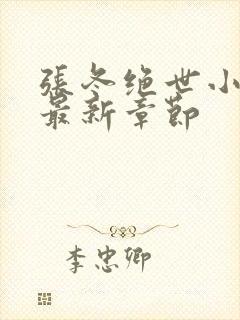 張冬绝世小
最新章節
李忠卿